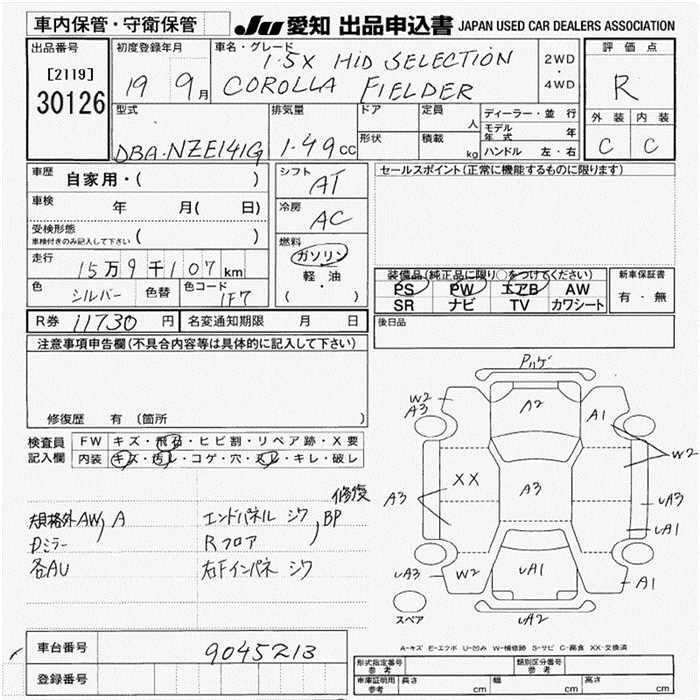 車内保管・守衛保管
JU 愛知 出品申込書 JAPAN USED CAR DEALERS ASSOCIATION
出品番号
[2119]
30126
初度登録年月
19 9月
車名・グレード
1.5X HiD SELECTION
COROLLA FIELDER
2WD
・
4WD
評価点
R
外装 内装
C C
型式
DBA-NZE141G
排気量
1.49cc
ドア
形状
定員
人
積載
kg
ディーラー・並行
モデル年式 年
ハンドル 左・右
車歴
自家用・( )
車検
年 月(日)
受検形態
車検付きのみ記入して下さい ( )
走行
15万9千107km
色
シルバー
色替
色コード
1F7
シフト
AT
冷房
AC
燃料
ガソリン
・
軽・油
( )
セールスポイント(正常に機能するものに限ります)
装備品(純正品に限り○をつけてください)
PS PW エアB AW
SR ナビ TV カワシート
新車保証書
有・無
R券 11730円
名変通知期限 月 日
後日品
注意事項申告欄(不具合内容等は具体的に記入して下さい)
修復歴 有(箇所 )
検査員記入欄
FW キズ・飛石・ヒビ割・リペア跡・X要
内装 キズ・汚レ・コゲ・穴・スレ・キレ・破レ
修復
規格外AW, A
Dミラー
各AU
エンドパネル シワ, BP
Rフロア
右Fインパネ シワ
Pハゲ
W2
A3
A2
A1
XX
W2
A3
A3
uA3
uA1
uA3
W2
uA1
A1
uA2
スペア
A-キズ E-エクボ U-凹み W-補修跡 S-サビ C-腐食 XX-交換済
車台番号
9045213
登録番号
形式指定番号
参考
類別区分番号
参考
車庫証明用
参考
長さ cm
幅 cm
高さ cm